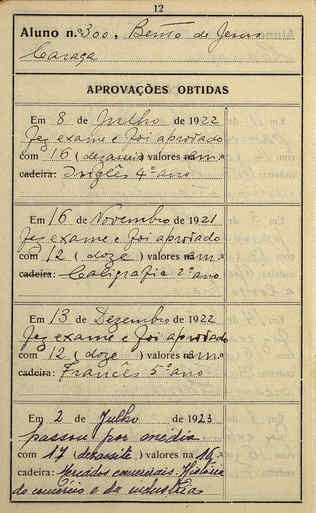 12
Aluno n.º 300, Bento de Jesus
Caraça
APROVAÇÕES OBTIDAS
Em 8 de Julho de 1922
Fez exame e foi aprovado
com 16 (dezasseis) valores na m.ª
cadeira: Inglês 4º ano
Em 16 de Novembro de 1921
Fez exame e foi aprovado
com 12 (doze) valores na m.ª
cadeira: Caligrafia 2º ano
Em 13 de Dezembro de 1922
Fez exame e foi aprovado
com 12 (doze) valores na m.ª
cadeira: Francês 5º ano
Em 2 de Julho de 1923
passou por média
com 17 (dezassete) valores na 16ª
cadeira: Mercados comerciais. História
do comércio e da industria